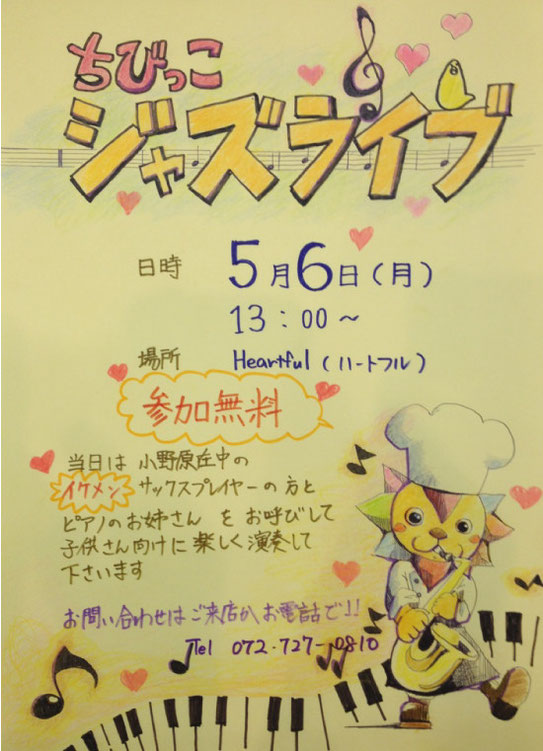 ちびっこ
ジャズライブ
日時 5月6日(月)
13:00〜
場所 Heartful(ハートフル)
参加無料
当日は 小野原在中の
イケメン サックスプレイヤーの方と
ピアノのお姉さん をお呼びして
子供さん向けに楽しく演奏して
下さいます
お問い合わせはご来店かお電話で!!
Tel 072-727-0810